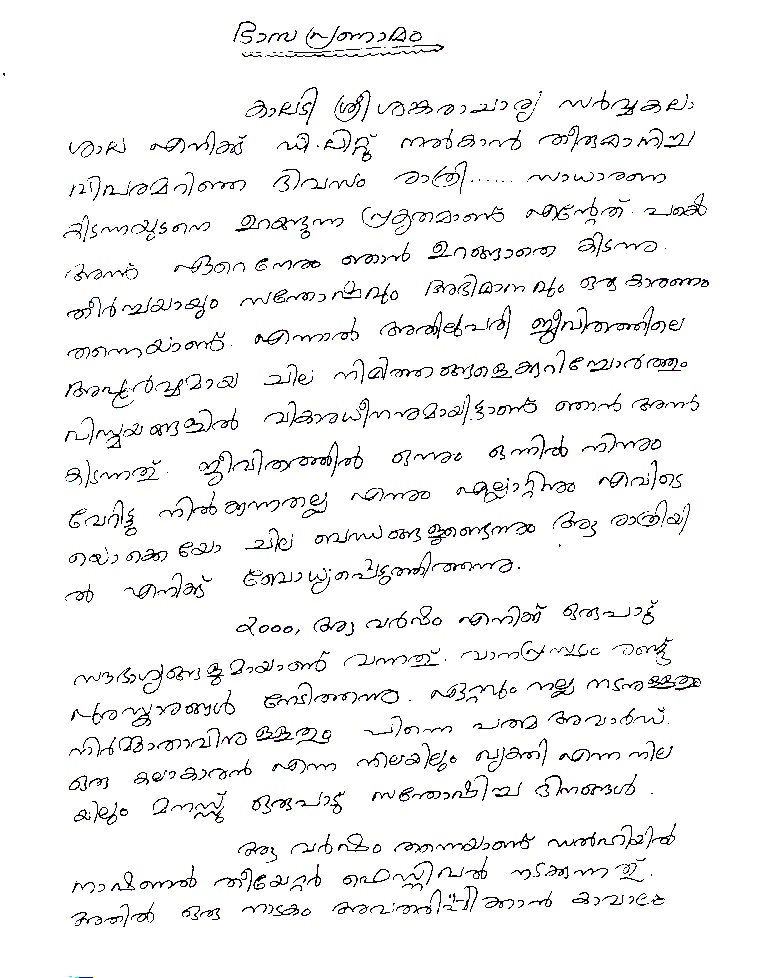 ഭാസ പ്രണാമം
കാലടി ശ്രീ ശങ്കരാചാര്യ സർവ്വകലാ
ശാല എനിക്ക് ഡി.ലിറ്റ് നൽകാൻ തീരുമാനിച്ച
വിവരമറിഞ്ഞ ദിവസം രാത്രി...... സാധാരണ
കിടന്നയുടനെ ഉറങ്ങുന്ന പ്രകൃതമാണ് എന്റേത്. പക്ഷെ
അന്ന് ഏറെ നേരം ഞാൻ ഉറങ്ങാതെ കിടന്നു.
തീർച്ചയായും സന്തോഷവും അഭിമാനവും ഒരു കാരണം
തന്നെയാണ്. എന്നാൽ അതിലുപരി ജീവിതത്തിലെ
അപൂർവ്വമായ ചില നിമിത്തങ്ങളെക്കുറിച്ചോർത്തും
വിസ്മയങ്ങളിൽ വികാരധീനനുമായിട്ടാണ് ഞാൻ അന്ന്
കിടന്നത്. ജീവിതത്തിൽ ഒന്നും ഒന്നിൽ നിന്നും
വേറിട്ടു നിൽക്കുന്നതല്ല എന്നും എല്ലാറ്റിനും എവിടെ
യൊക്കെയോ ചില ബന്ധങ്ങളുണ്ടെന്നും ആ രാത്രിയി
ൽ എനിക്ക് ബോധ്യപ്പെടുത്തിത്തന്നു.
2000, ആ വർഷം എനിക്ക് ഒരുപാട്
സൗഭാഗ്യങ്ങളുമായാണ് വന്നത്. വാനപ്രസ്ഥം രണ്ട്
പുരസ്കാരങ്ങൾ നേടിത്തന്നു. ഏറ്റവും നല്ല നടനുള്ളതും
നിർമ്മാതാവിനുള്ളതും പിന്നെ പത്മ അവാർഡ്.
ഒരു കലാകാരൻ എന്ന നിലയിലും വ്യക്തി എന്ന നില
യിലും മനസ്സ് ഒരുപാട് സന്തോഷിച്ച ദിനങ്ങൾ.
ആ വർഷം തന്നെയാണ് ഡൽഹിയിൽ
നാഷണൽ തീയേറ്റർ ഫെസ്റ്റിവൽ നടക്കുന്നത്.
അതിൽ ഒരു നാടകം അവതരിപ്പിക്കാൻ കാവാലം